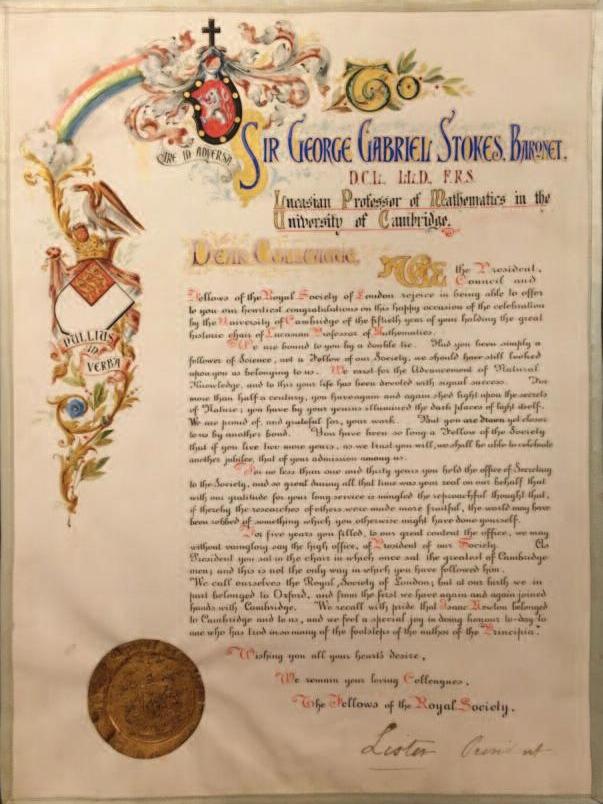 To
FIRE IN ADVERSA
SIR GEORGE GABRIEL STOKES, BARONET,
D.C.L. LL.D. F.R.S.
Lucasian Professor of Mathematics in the
University of Cambridge.
DEAR COLLEAGUE,
WE the President,
Council and
Fellows of the Royal Society of London rejoice in being able to offer
to you our heartiest congratulations on this happy occasion of the celebration
by the University of Cambridge of the fiftieth year of your holding the great
historic chair of Lucasian Professor of Mathematics.
We are bound to you by a double tie. Had you been simply a
follower of Science, not a Fellow of our Society, we should have still looked
upon you as belonging to us. We exist for the Advancement of Natural
Knowledge, and to this your life has been devoted with signal success. For
more than half a century, you have again and again shed light upon the secrets
of Nature; you have by your genius illumined the dark places of light itself.
We are proud of, and grateful for, your work. But you are drawn yet closer
to us by another bond. You have been so long a Fellow of the Society
that if you live two more years, as we trust you will, we shall be able to celebrate
another jubilee, that of your admission among us.
For no less than one and thirty years you held the office of Secretary
to the Society, and so great during all that time was your zeal on our behalf that
with our gratitude for your long service is mingled the reproachful thought that,
if thereby the researches of others were made more fruitful, the world may have
been robbed of something which you otherwise might have done yourself.
For five years you filled, to our great content the office, we may
without vainglory say the high office, of President of our Society. As
President you sat in the chair in which once sat the greatest of Cambridge
men; and this is not the only way in which you have followed him.
We call ourselves the Royal Society of London; but at our birth we in
part belonged to Oxford, and from the first we have again and again joined
hands with Cambridge. We recall with pride that Isaac Newton belonged
to Cambridge and to us, and we feel a special joy in doing honour to-day to
one who has trod in so many of the footsteps of the author of the "Principia".
Wishing you all your heart's desire,
We remain your loving Colleagues,
The Fellows of the Royal Society.
Lister President
NULLIUS
IN
VERBA